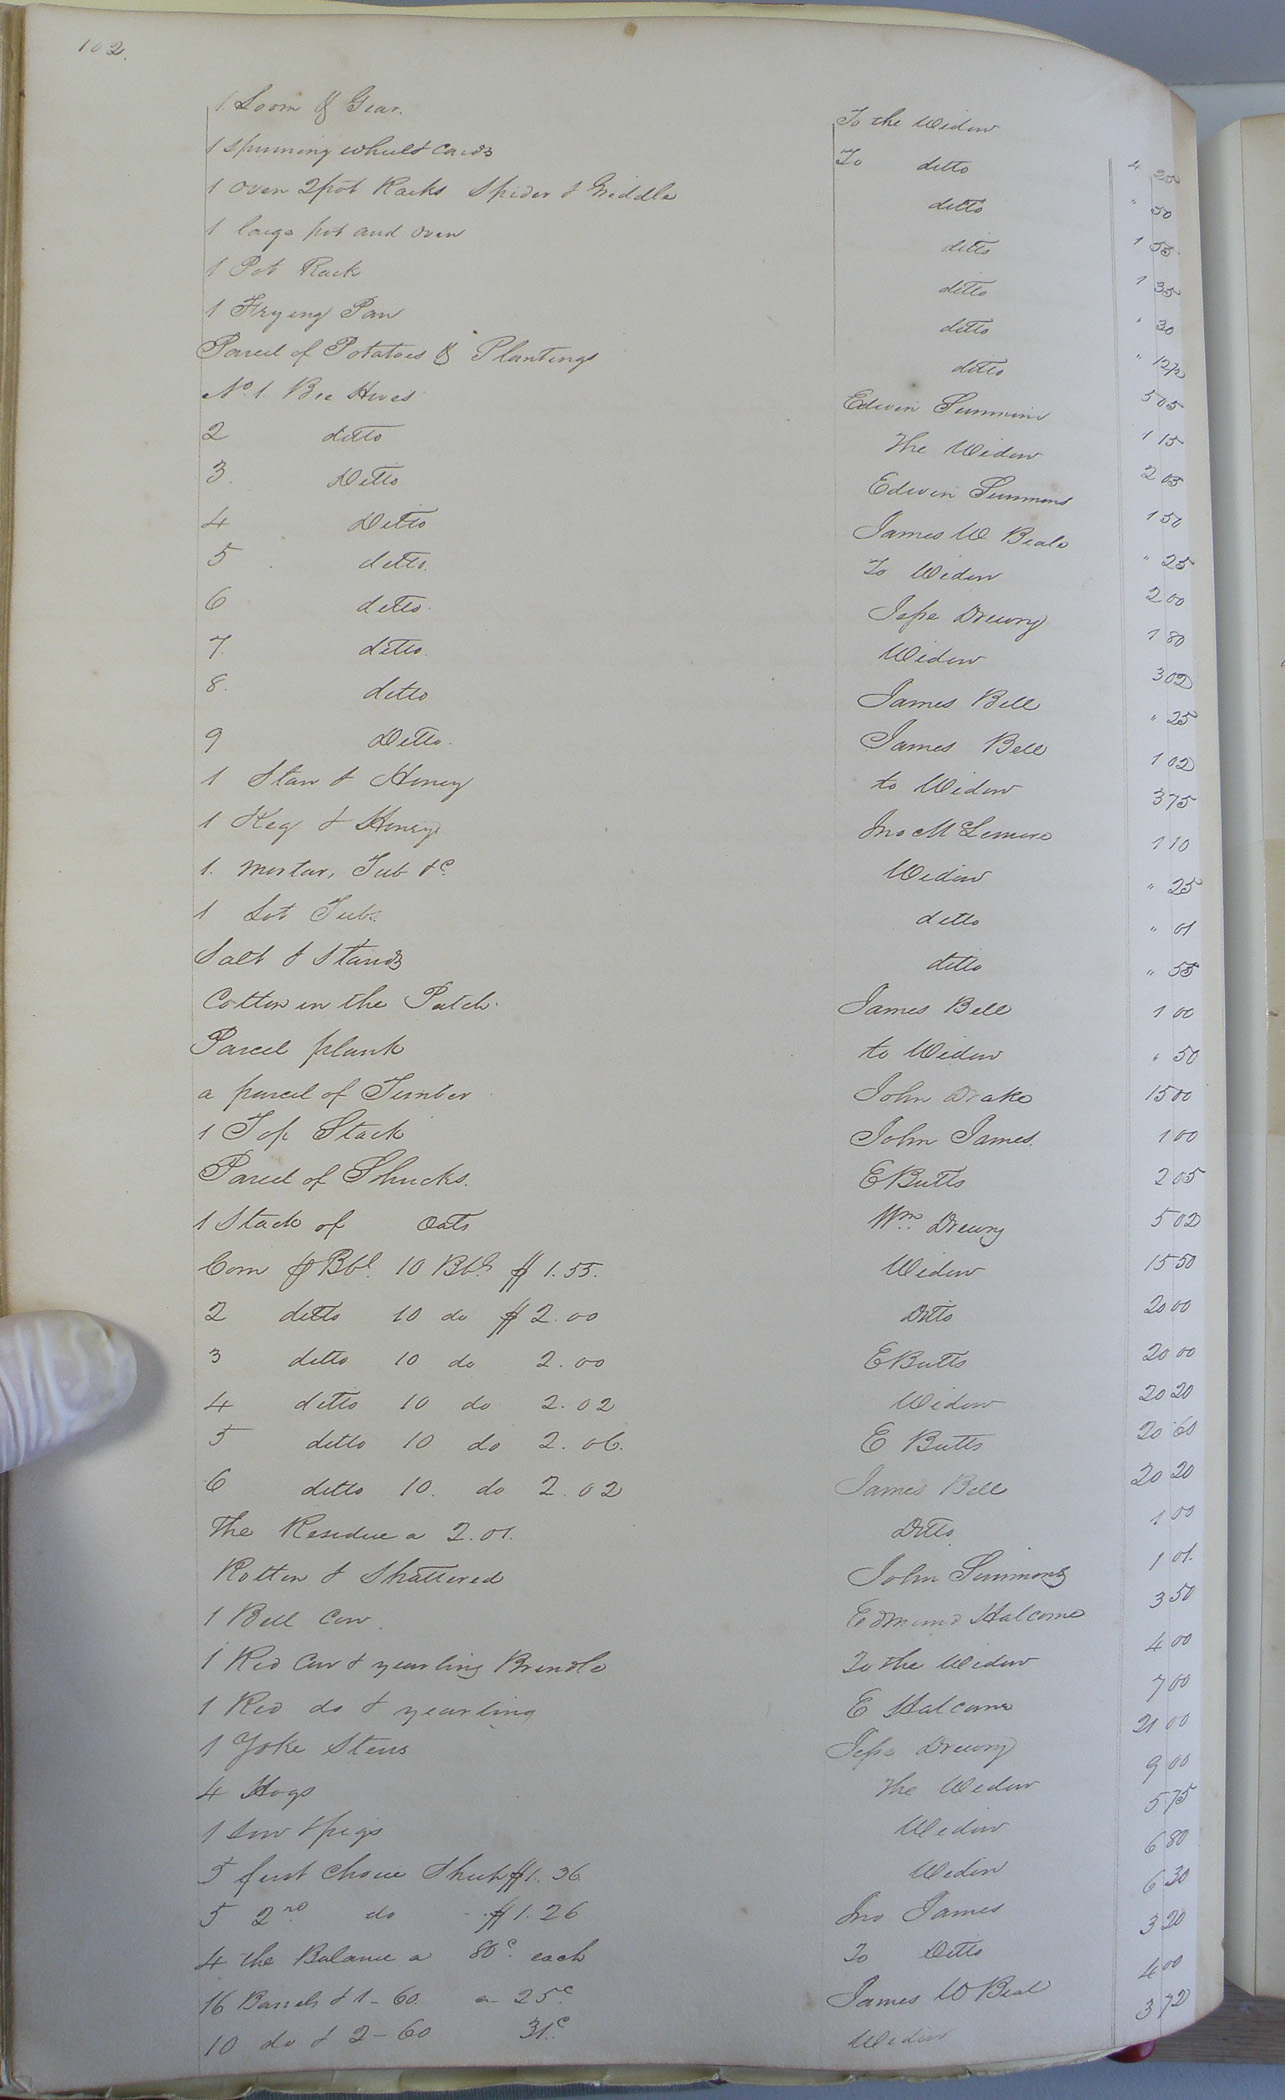 102.
1 Loom & Gear. To the Widow 4 25
1 Spinning wheel & Cards To ditto " 50
1 Oven 2 pot Racks Spider & Griddle ditto 1 55
1 large pot and Oven ditto 1 35
1 Pot Rack ditto " 30
1 Frying Pan ditto " 12½
Parcel of Potatoes & Plantings ditto 5 05
No. 1 Bee Hives Edwin Simmons 1 15
2 ditto The Widow 2 05
3. Ditto Edwin Simmons 1 50
4 Ditto James W Beale " 25
5 ditto. To Widow 2 00
6 ditto. Jesse Drewry 1 80
7. ditto. Widow 3 02
8. ditto James Bell " 25
9 Ditto. James Bell 1 02
1 Stan & Honey to Widow 3 75
1 Keg & Honey Jno McLemore 1 10
1. Mortar, Tub &c. Widow " 25
1 Lot Tubs ditto " 01
Salt & Stands ditto " 55
Cotton in the Patch. James Bell 1 00
Parcel plank to Widow " 50
a parcel of Timber John Drake 15 00
1 Top Stack John James. 1 00
Parcel of Shucks. E Butts 2 05
1 Stack of Oats Wm. Drewry 5 02
Corn Bbl. 10 Bbls $1.55. Widow 15 50
2 ditto 10 do $2.00 Ditto 20 00
3 ditto 10 do 2.00 E Butts 20 00
4 ditto 10 do 2.02 Widow 20 20
5 ditto 10 do 2.06. E Butts 20 60
6 ditto 10. do 2.02 James Bell 20 20
The Residue a 2.01. Ditto 1 00
Rotten & Shattered John Simmons 1 01.
1 Bell Cow Edmund Halcome 3 50
1 Red Cow & yearling Brindle To the Widow 4 00
1 Red do & yearling E Halcome 7 00
1 Yoke Steers Jesse Drewry 21 00
4 Hogs The Widow 9 00
1 Sow & pigs Widow 5 75
5 first Choice Shoats $1.36 Widow 6 80
5 2nd do $1.26 Jno James 6 30
4 the Balance a 80c. each To Ditto 3 20
16 Barrels & 1-60 a 25c. James W Beal 4 00
10 do & 2-60 31c. Widow 3 72